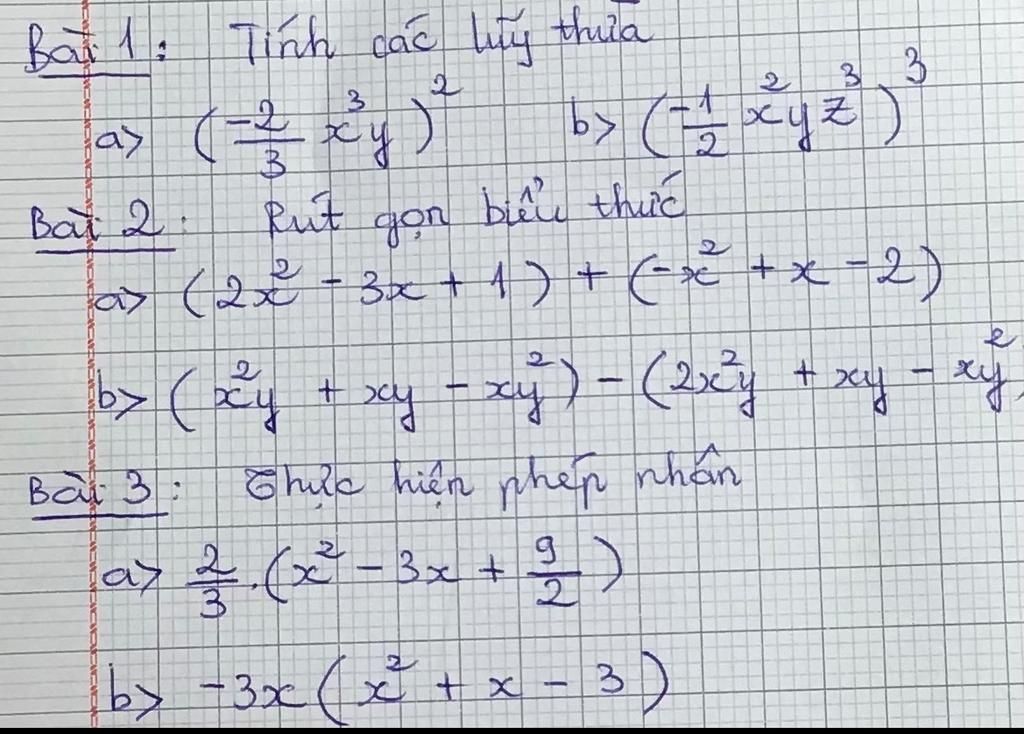 Bài 1: Tính các lũy thừa
a> (-2/3 x³y)² b> (-1/2 x²yz³)³
Bài 2: Rút gọn biểu thức
a> (2x² - 3x + 1) + (-x² + x - 2)
b> (x²y + xy - xy²) - (2x²y + xy - xy²)
Bài 3: Thực hiện phép nhân
a> 2/3 . (x² - 3x + 9/2)
b> -3x (x² + x - 3)